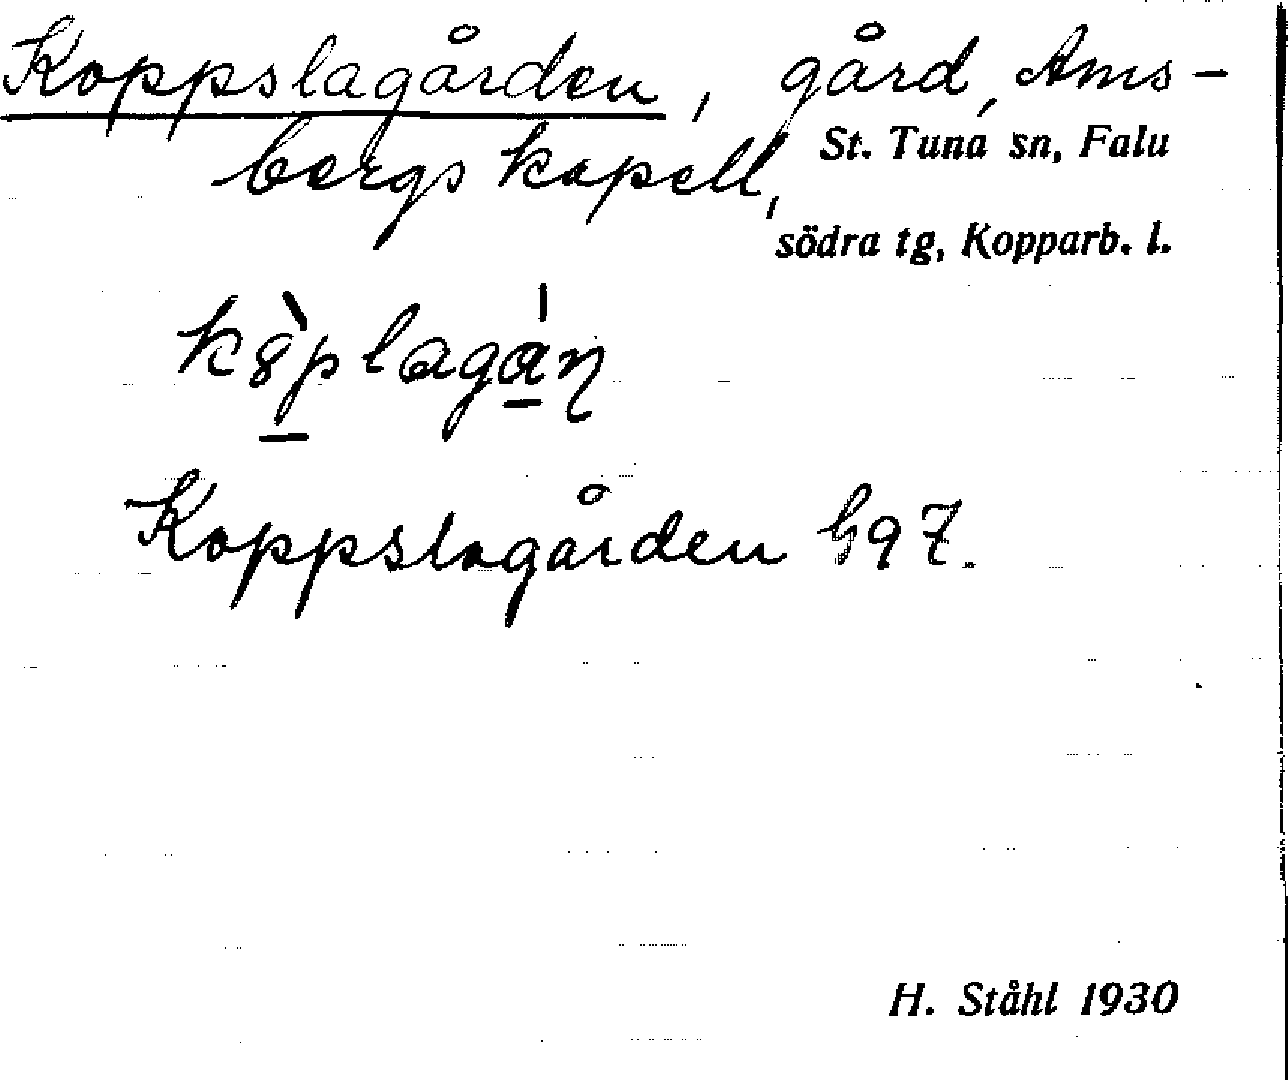 Koppslagården, gård, Ams-
bergs kapell, St. Tuna sn, Falu
södra tg, Kopparb. l.
Koppslagården G97.
H. Ståhl 1930